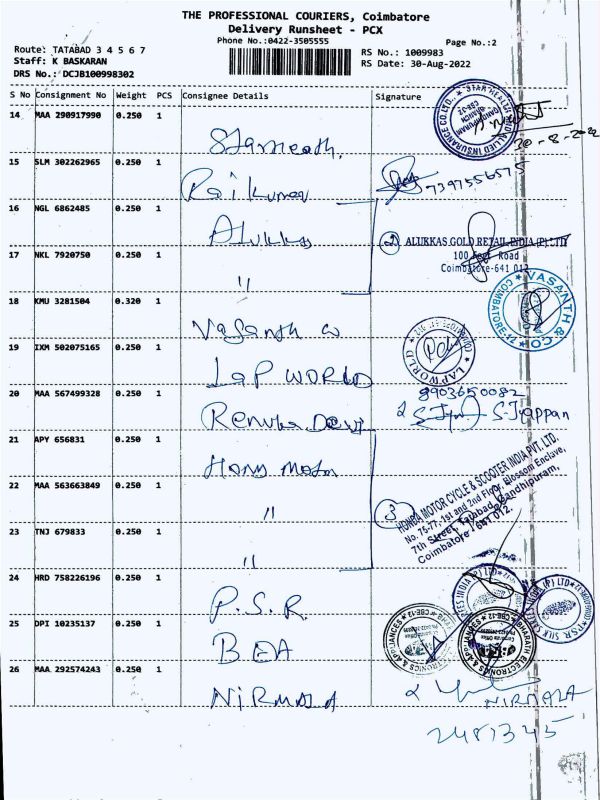 THE PROFESSIONAL COURIERS, Coimbatore
Delivery Runsheet - PCX
Phone No.:0422-3505555
Page No.:2
Route: TATABAD 3 4 5 6 7
RS No.: 1009983
Staff: K BASKARAN
RS Date: 30-Aug-2022
DRS No.: DCJB100998302
S No Consignment No Weight PCS Consignee Details Signature
14 MAA 290917990 0.250 1
STAR HEALTH AND ALLIED INSURANCE CO.LTD.
GANDHIPURAM BRANCH CBE-12
30-8-2022
15 SLM 302262965 0.250 1 Raj kumar 7397556575
16 NGL 6862485 0.250 1 Alukkas
2 ALUKKAS GOLD RETAIL INDIA (P) LTD
100 Feet Road
Coimbatore-641 012
17 NKL 7920750 0.250 1 "
18 KMU 3281504 0.320 1 Vasanth
VASANTH & CO
COIMBATORE-12
19 IXM 502075165 0.250 1 LAP WORLD
LAP WORLD
20 MAA 567499328 0.250 1 Renuka Devi
8903650082
S. Iyappan
21 APY 656831 0.250 1 Honda Motor
3 HONDA MOTOR CYCLE & SCOOTER INDIA PVT. LTD.
No. 75-77, 1st and 2nd Floor, Blossom Enclave,
7th Street, Tatabad, Gandhipuram,
Coimbatore - 641 012.
22 MAA 563663849 0.250 1 "
23 TNJ 679833 0.250 1 "
24 HRD 758226196 0.250 1 P.S.R.
25 DPI 10235137 0.250 1 BEA
BHARATH ELECTRONICS & APPLIANCES
CBE-12
26 MAA 292574243 0.250 1 NIRMALA
NIRMALA
2481345